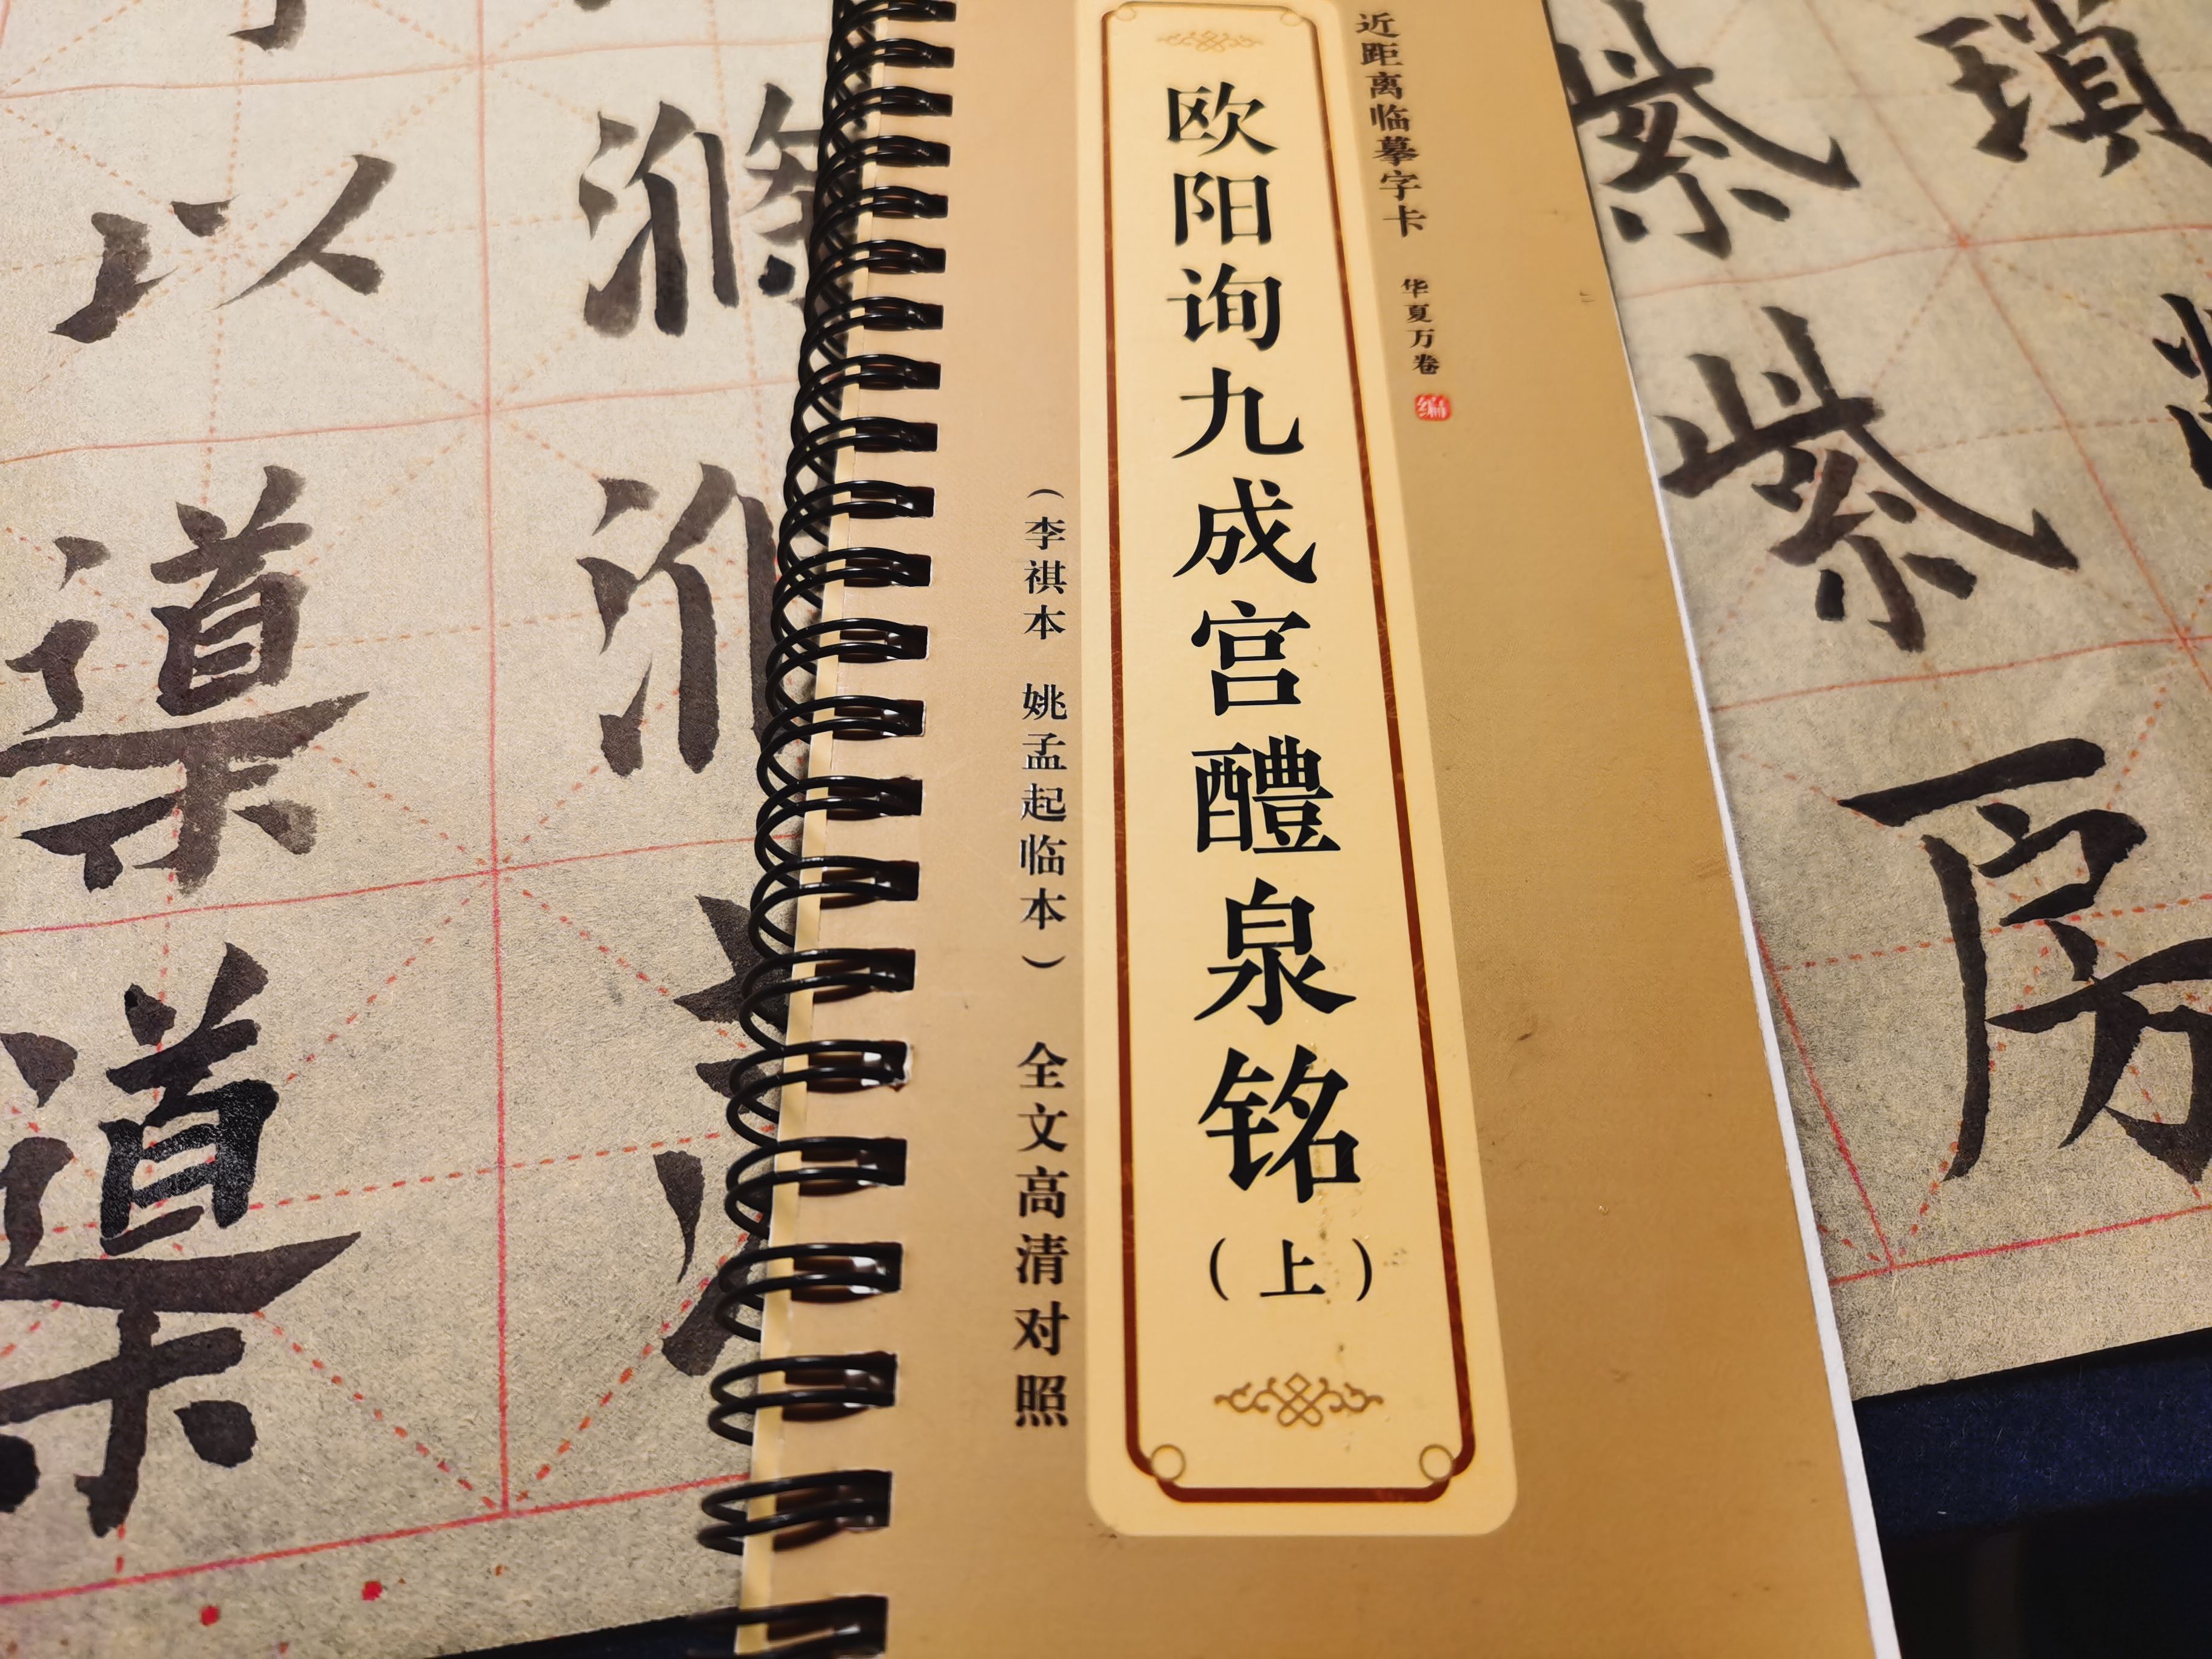 近距离临摹字卡 华夏万卷 编
欧阳询九成宫醴泉铭(上)
(李祺本 姚孟起临本) 全文高清对照
以
導
導
滌
紫
紫
房
瑣